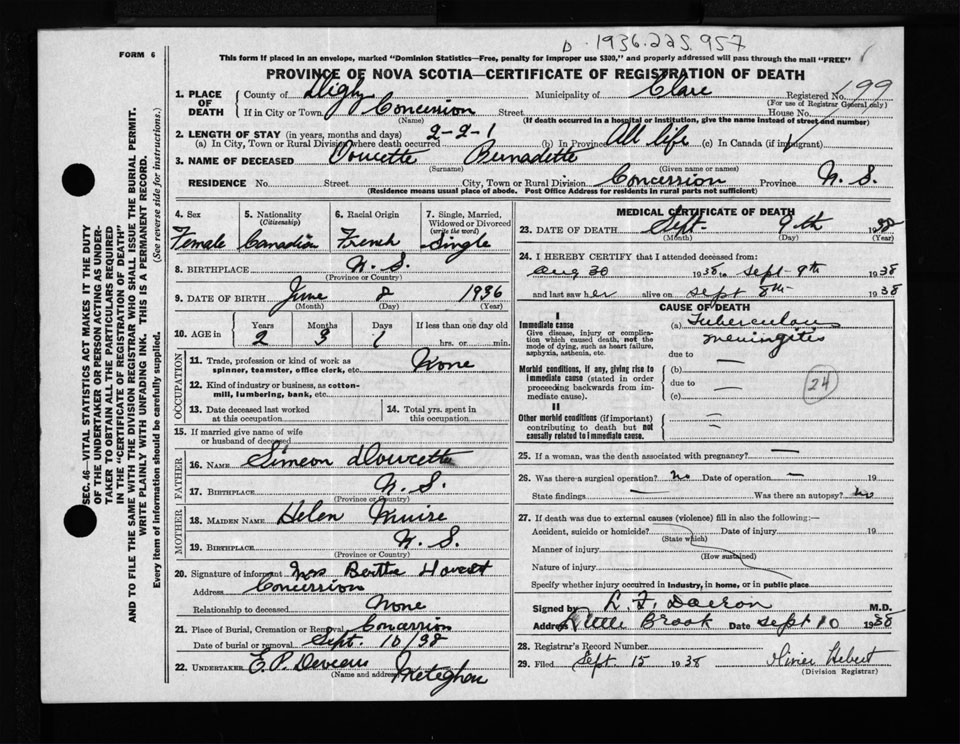 D. 1936.225.957
FORM 6
This form if placed in an envelope, marked "Dominion Statistics—Free, penalty for improper use $300," and properly addressed will pass through the mail "FREE"
PROVINCE OF NOVA SCOTIA—CERTIFICATE OF REGISTRATION OF DEATH
1. PLACE OF DEATH County of Digby Municipality of Clare Registered No. 99
(For use of Registrar General only)
If in City or Town Concession Street House No.
(Name) (If death occurred in a hospital or institution, give the name instead of street and number)
2. LENGTH OF STAY (in years, months and days) 2-2-1
(a) In City, Town or Rural Division where death occurred (b) In Province All life (c) In Canada (if immigrant)
3. NAME OF DECEASED Doucette Bernadette
(Surname) (Given name or names)
RESIDENCE No. Street City, Town or Rural Division Concession Province N. S.
(Residence means usual place of abode. Post Office Address for residents in rural parts not sufficient)
SEC. 46—VITAL STATISTICS ACT MAKES IT THE DUTY
OF THE UNDERTAKER OR PERSON ACTING AS UNDER-
TAKER TO OBTAIN ALL THE PARTICULARS REQUIRED
IN THE "CERTIFICATE OF REGISTRATION OF DEATH"
AND TO FILE THE SAME WITH THE DIVISION REGISTRAR WHO SHALL ISSUE THE BURIAL PERMIT.
WRITE PLAINLY WITH UNFADING INK. THIS IS A PERMANENT RECORD.
Every item of information should be carefully supplied. (See reverse side for instructions.)
4. Sex 5. Nationality (Citizenship) 6. Racial Origin 7. Single, Married, Widowed or Divorced (write the word)
Female Canadian French Single
8. BIRTHPLACE N. S.
(Province or Country)
9. DATE OF BIRTH June 8 1936
(Month) (Day) (Year)
10. AGE in Years Months Days If less than one day old
2 3 1 hrs. or min.
OCCUPATION
11. Trade, profession or kind of work as spinner, teamster, office clerk, etc. None
12. Kind of industry or business, as cotton-mill, lumbering, bank, etc.
13. Date deceased last worked at this occupation 14. Total yrs. spent in this occupation
15. If married give name of wife or husband of deceased
FATHER
16. NAME Simeon Doucette
17. BIRTHPLACE N. S.
(Province or Country)
MOTHER
18. MAIDEN NAME Helen Muise
19. BIRTHPLACE N. S.
(Province or Country)
20. Signature of informant Mrs Berthe
Address Concession
Relationship to deceased None
21. Place of Burial, Cremation or Removal Concession
Date of burial or removal Sept. 10/38
22. UNDERTAKER E. P. Deveau Meteghan
(Name and address)
MEDICAL CERTIFICATE OF DEATH
23. DATE OF DEATH Sept. 9th 1938
(Month) (Day) (Year)
24. I HEREBY CERTIFY that I attended deceased from:
Aug 30 1938 to Sept-9th 1938
and last saw her alive on Sept 8th 1938
CAUSE OF DEATH
I
Immediate cause (a) Tuberculous meningitis
Give disease, injury or complication which caused death, not the mode of dying, such as heart failure, asphyxia, asthenia, etc. due to —
Morbid conditions, if any, giving rise to immediate cause (stated in order proceeding backwards from immediate cause). (b) due to — (c) 24
II
Other morbid conditions (if important) contributing to death but not causally related to immediate cause.
25. If a woman, was the death associated with pregnancy? —
26. Was there a surgical operation? no Date of operation — 19
State findings — Was there an autopsy? no
27. If death was due to external causes (violence) fill in also the following:—
Accident, suicide or homicide? Date of injury 19
(State which)
Manner of injury
(How sustained)
Nature of injury
Specify whether injury occurred in industry, in home, or in public place
Signed by L. F. M.D.
Address Little Brook Date Sept 10 1938
28. Registrar's Record Number
29. Filed Sept 15 1938 Olivier Hebert
(Division Registrar)